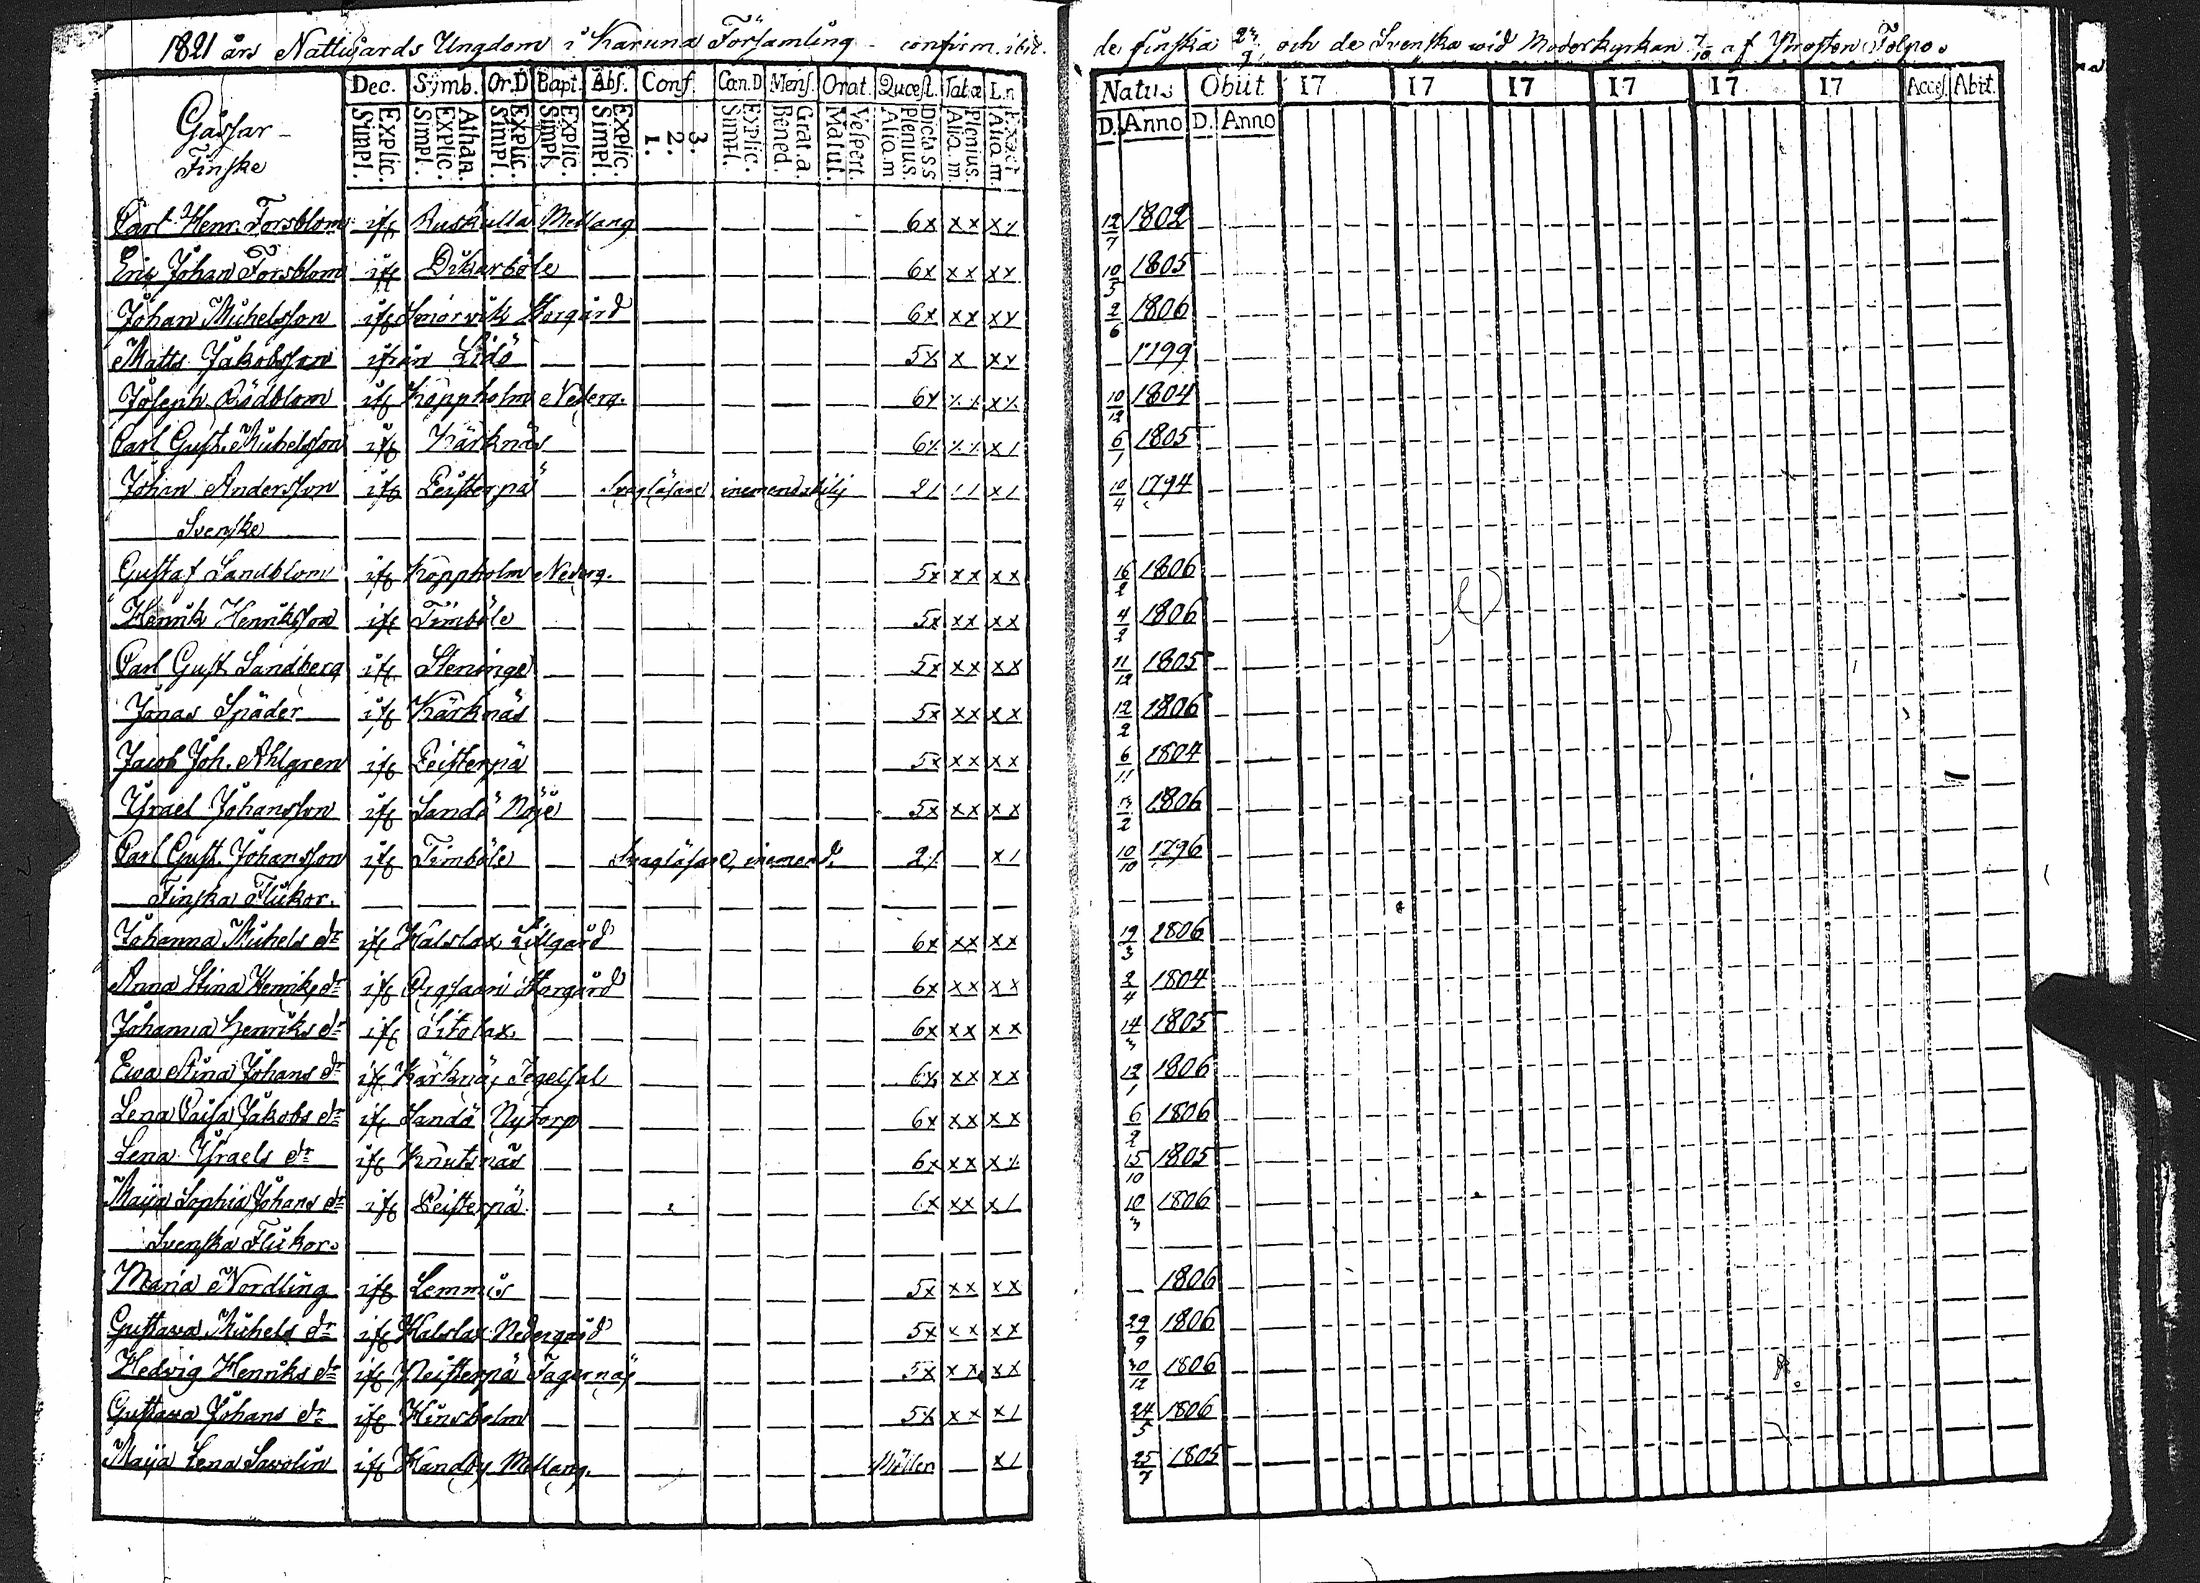 1821 års Nattwards Ungdom i Karuna Församling - confirm. ibid. de finska 23/9 och de Svenska wid Moderkyrkan 7/10 af Prosten Tolpo.
Dec. Symb. Or.D Bapt. Abs. Conf. Can.D Mens. Orat. Quæst. Tab.œ Ln Natus Obiit 17 17 17 17 17 17 Access. Abit.
Gåssar
Finske
Explic. Simpl. Athan. Explic. Simpl. Explic. Simpl. Explic. Simpl. Explic. Simpl. 3. 2. 1. Explic. Simpl. Grat.a Bened. Vespert. Matut. Dicta S S Plenius. Aliq.m Plenius. Aliq.m. Exact Aliq.m. D. Anno D. Anno
Carl Henr. Forsblom if Ruskulla Mellang 6x xx xx 12/7 1802
Eric Johan Forsblom if Dikarböle 6x xx xx 10/5 1805
Johan Michelsson if Smörwik Storgård 6x xx xx 2/6 1806
Matts Jakobsson ifrån Lidö 5x x xx 1799
Joseph Rödblom if Koppholm Nederg. 6x xx xx 10/12 1804
Carl Gust. Michelsson if Kärknäs 6x xx x/ 6/1 1805
Johan Andersson if Peisterpä Swagläsare, 2/ // x/ 10/4 1794
Svenske
Gustaf Sandblom if Koppholm Nederg. 5x xx xx 16/2 1806
Henrik Henriksson if Timböle 5x xx xx 4/2 1806
Carl Gust Sandberg if Steninge 5x xx xx 11/12 1805
Jonas Späder if Kärknäs 5x xx xx 12/2 1806
Jacob Joh. Ahlgren if Peisterpä 5x xx xx 6/11 1804
Israel Johansson if Sandö Nöje 5x xx xx 1806
Carl Gust. Johansson if Timböle Swagläsare, 2x x/ 10/10 1796
Finska Flickor.
Johanna Michels dr if Kalslax Lillgård 6x xx xx 19/3 1806
Anna Stina Henriks dr if Storgård 6x xx xx 2/4 1804
Johanna Henriks dr if Sitolax 6x xx xx 14/3 1805
Ewa Stina Johans dr if Kärknäs Tegelsal 6x xx xx 12/1 1806
Lena Caisa Jakobs dr if Sandö Nytorp 6x xx xx 6/2 1806
Lena Israels dr if Knutsnäs 6x xx xx 15/10 1805
Maija Sophia Johans dr if Peisterpä 6x xx x/ 10/3 1806
Svenska Flickor.
Maria Nordling if Lemmis 5x xx xx 1806
Gustava Michels dr if Kalslax Nedergård 5x xx xx 29/9 1806
Hedvig Henriks dr if Peisterpä Fagernäs 5x xx xx 30/12 1806
Gustava Johans dr if Hinsholm 5x xx x/ 24/5 1806
Maija Lena Savolin if Kandby Mellang. x/ 25/7 1805